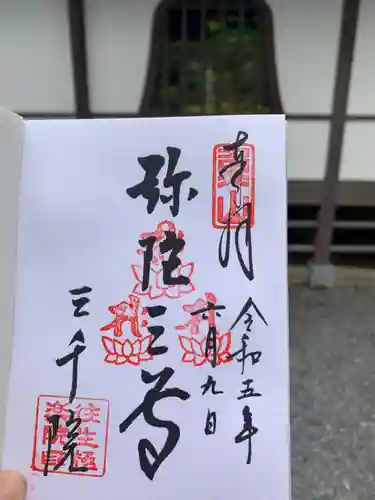 奉拝
令和五年
六月九日
弥陀三尊
三千院